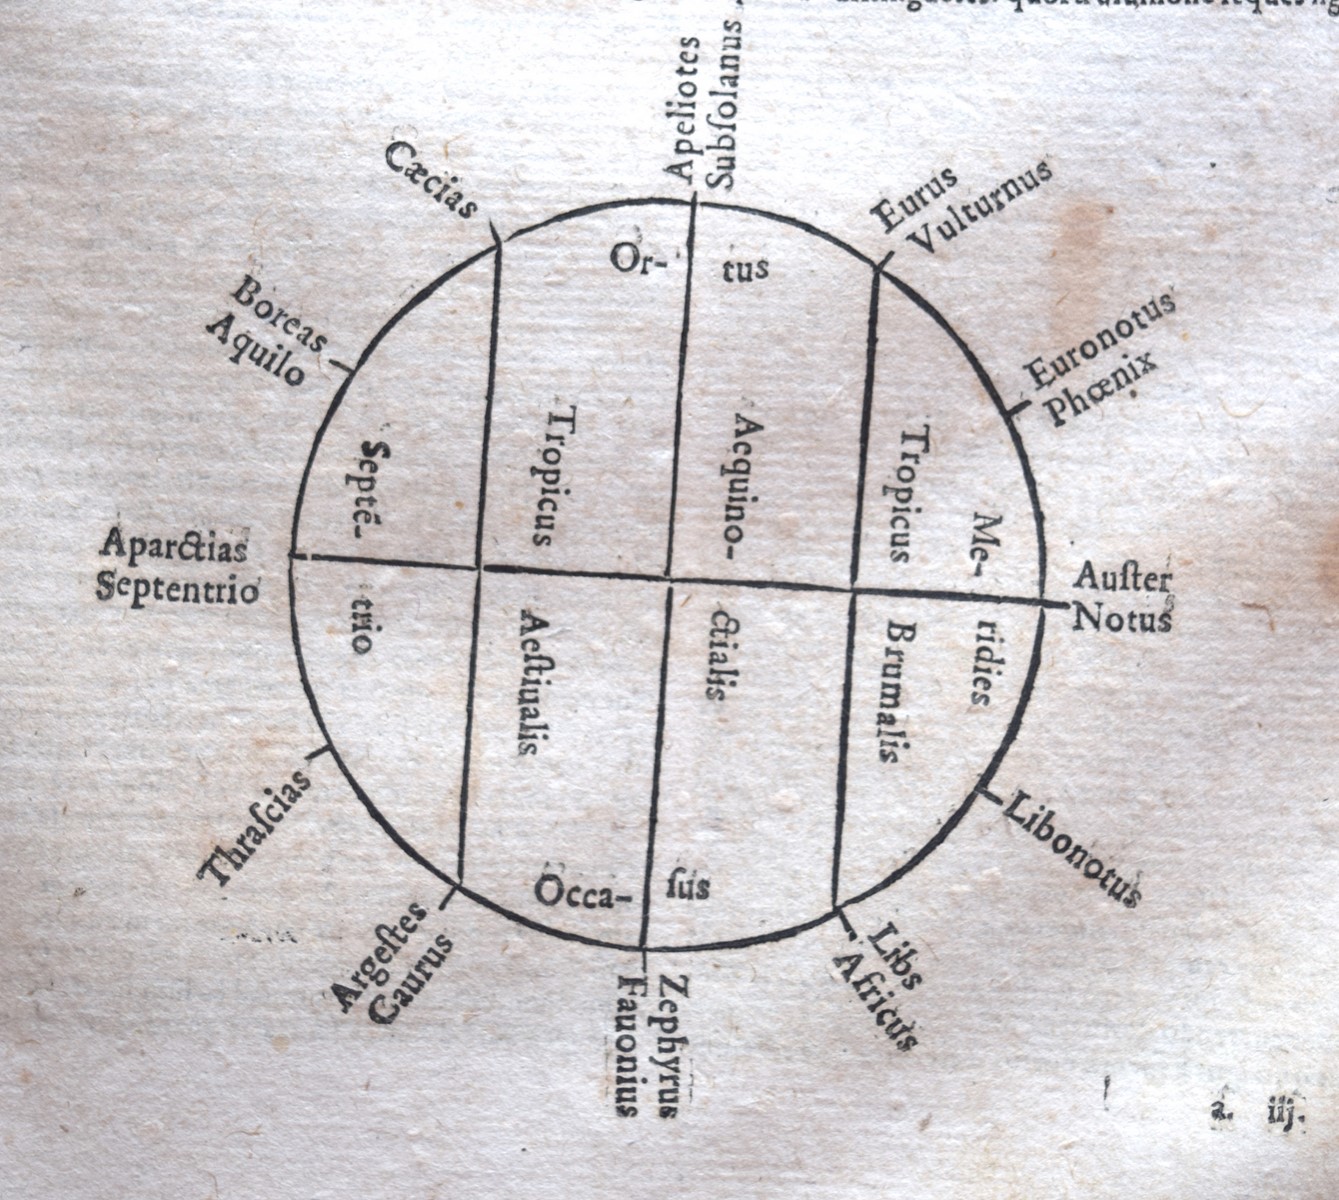 Apeliotes
Subſolanus
Cæcias
Eurus
Vulturnus
Boreas
Aquilo
Euronotus
Phœnix
Or- tus
Septē- trio
Tropicus Aeſtiualis
Aequino- ctialis
Tropicus Brumalis
Me- ridies
Aparctias
Septentrio
Auſter
Notus
Thraſcias
Libonotus
Occa- ſus
Argeſtes
Caurus
Libs
Africus
Zephyrus
Fauonius
a. iij.